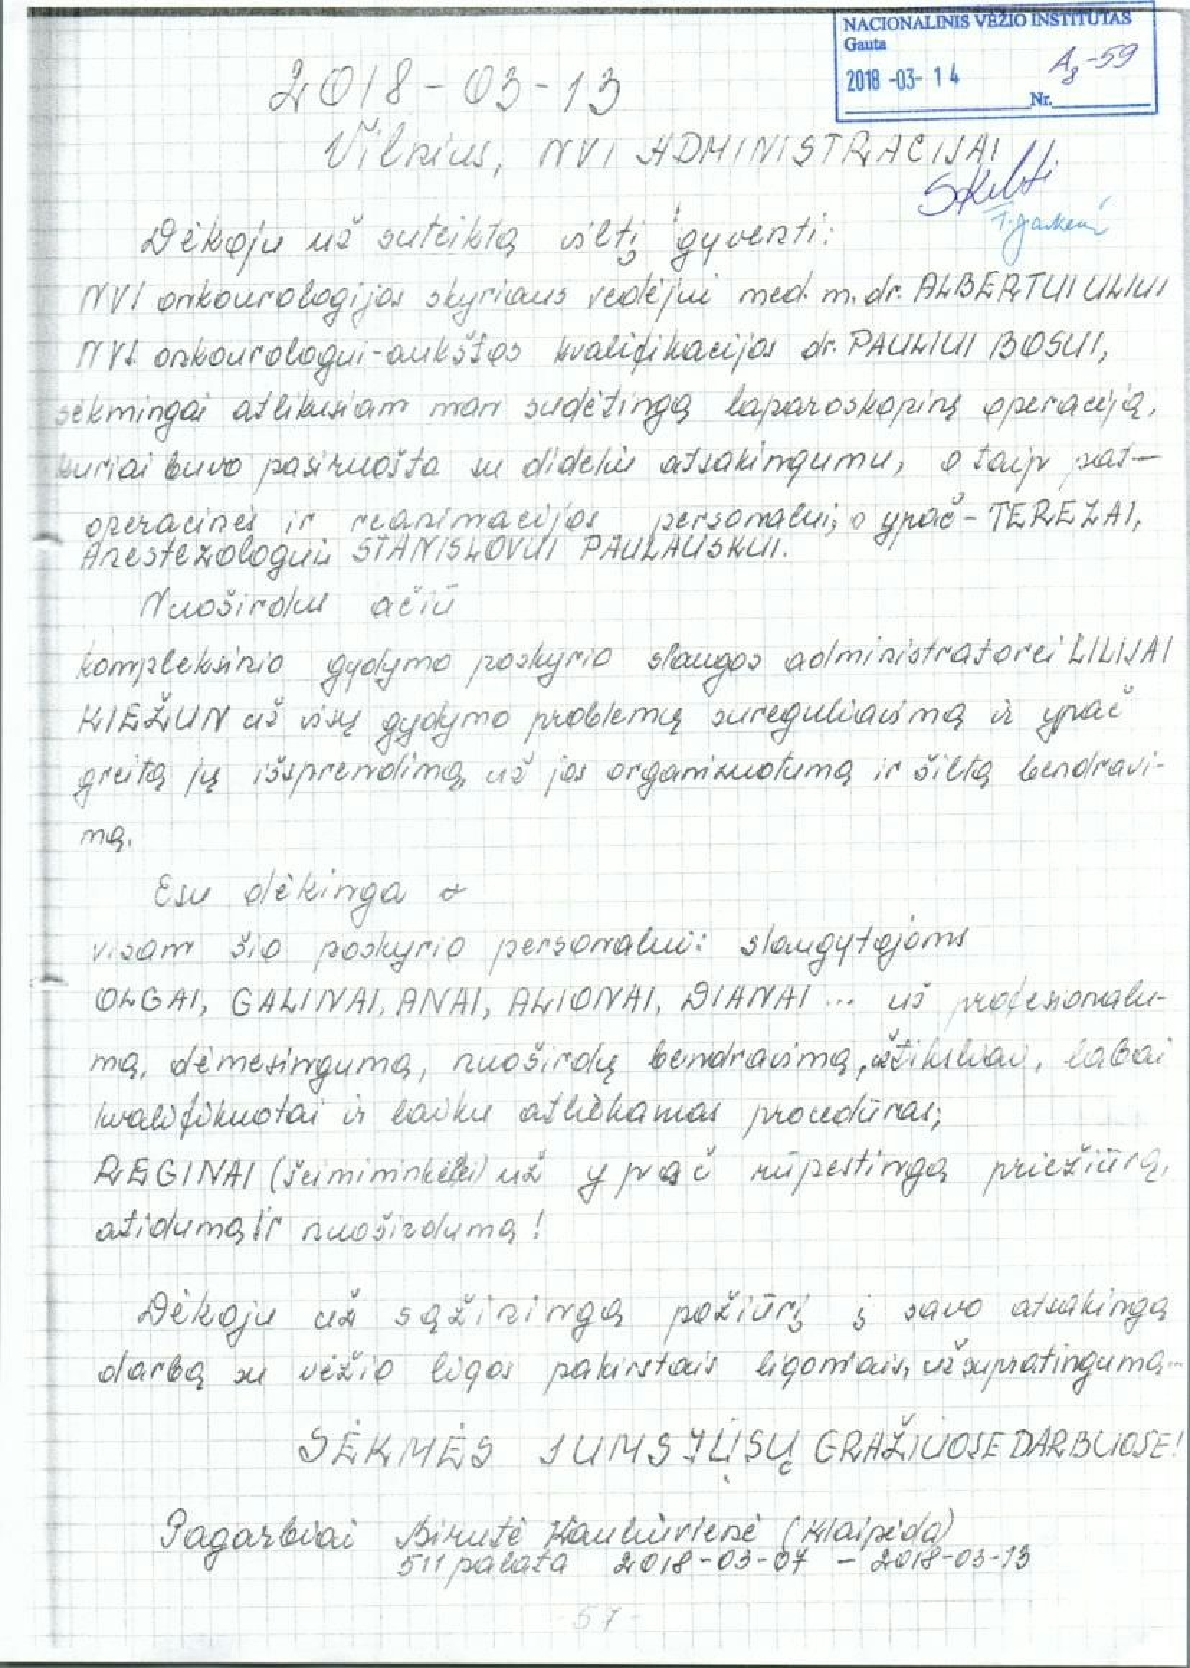 NACIONALINIS VĖŽIO INSTITUTAS
Gauta
2018 -03- 14 A8-59
Nr.
2018-03-13
Vilnius, NVI ADMINISTRACIJAI
Dėkoju už suteiktą viltį gyventi:
NVI onkourologijos skyriaus vedėjui med. m. dr. ALBERTUI ULIUI
NVI onkourologui-aukštos kvalifikacijos dr. PAULIUI BOSUI,
sėkmingai atlikusiam man sudėtingą laparoskopinę operaciją,
kuriai buvo pasiruošta su dideliu atsakingumu, o taip pat-
operacinės ir reanimacijos personalui, o ypač - TEREZAI,
Anestezologui STANISLOVUI PAULAUSKUI.
Nuoširdus ačiū
kompleksinio gydymo poskyrio slaugos administratorei LILIJAI
KIEŽUN už visų gydymo problemų sureguliavimą ir ypač
greitą jų išsprendimą, už jos organizuotumą ir šiltą bendravi-
mą.
Esu dėkinga
visam šio poskyrio personalui: slaugytojoms
OLGAI, GALINAI, ANAI, ALIONAI, DIANAI ... už profesionalu-
mą, dėmesingumą, nuoširdų bendravimą, labai
kvalifikuotai ir laiku atliekamas procedūras;
REGINAI (šeimininkėlei) už ypač rūpestingą priežiūrą,
atidumą ir nuoširdumą!
Dėkoju už sąžiningą požiūrį į savo atsakingą
darbą su vėžio ligos pakirstais ligoniais, už supratingumą...
SĖKMĖS JUMS JŪSŲ GRAŽIUOSE DARBUOSE!
Pagarbiai Birutė (Klaipėda)
511 palata 2018-03-07 - 2018-03-13
- 57 -